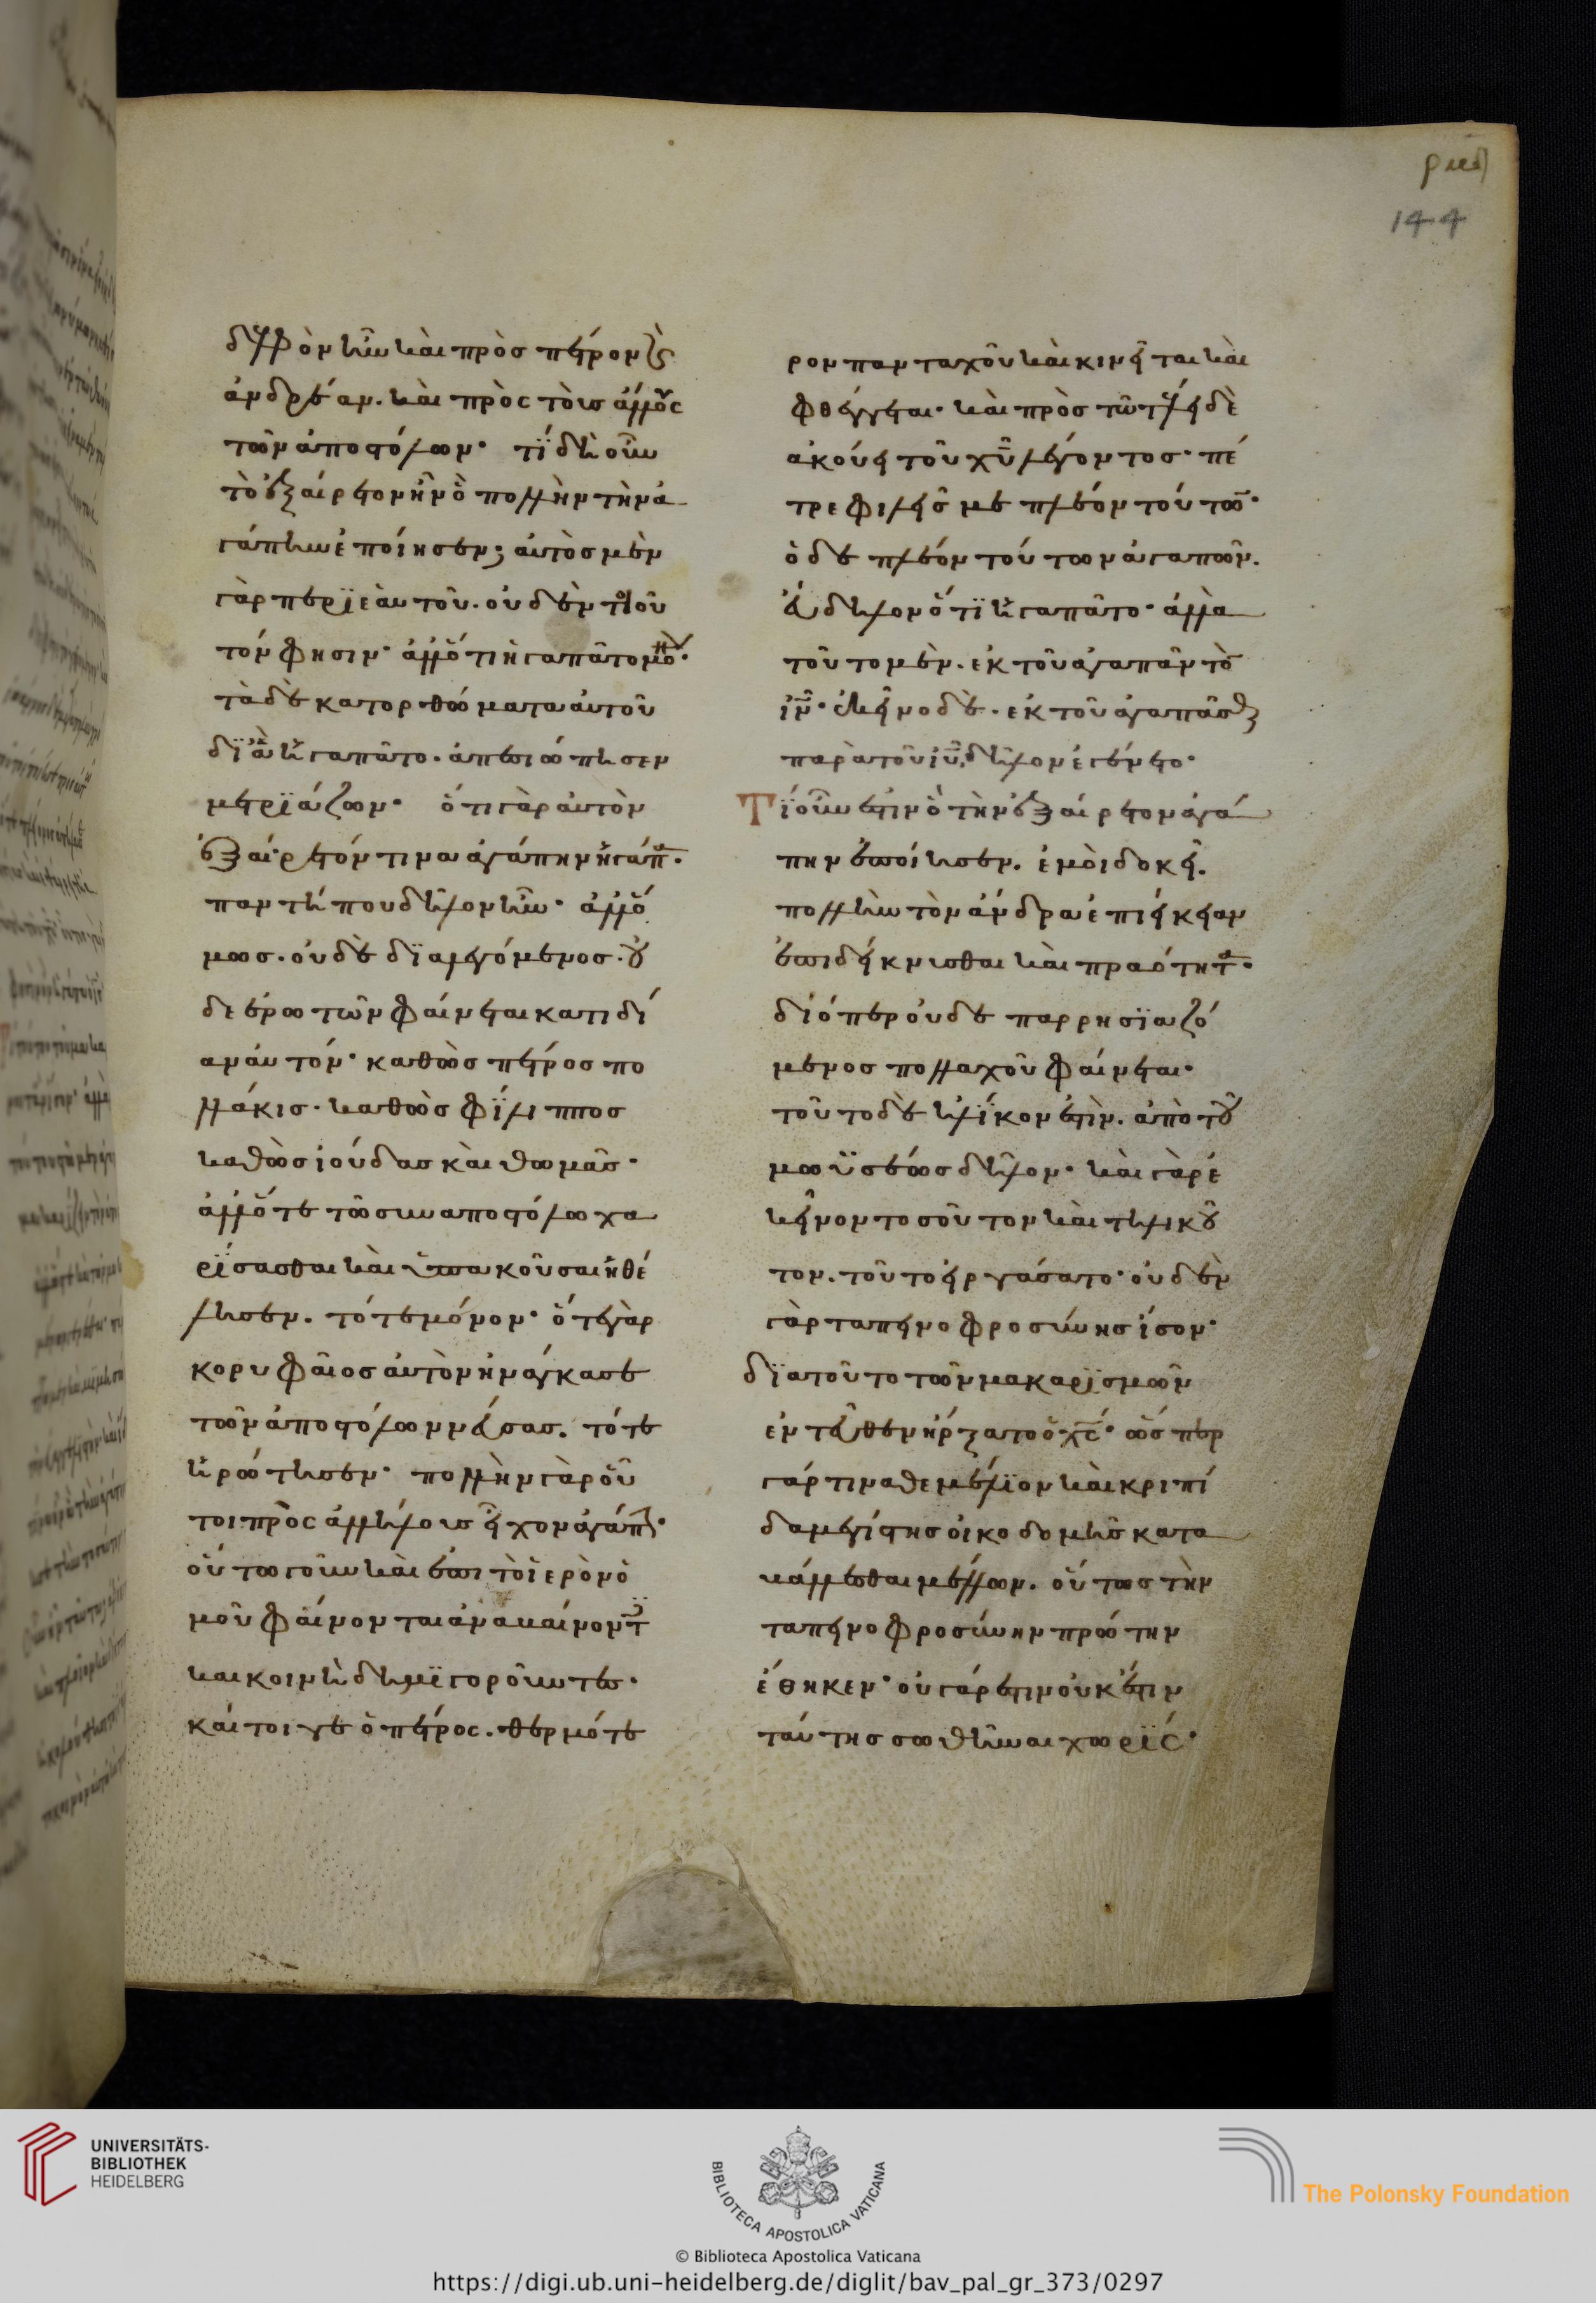 ρμδ
144
δελφὸν ἦν καὶ πρὸς πέτρον κ(αὶ)
ἀνδρέαν. καὶ πρὸς τοὺς ἄλλους
τῶν ἀποστόλων· τί δὴ οὖν
τὸ ἐξαίρετον ἦν ὃ πολλὴν τὴν ἀ
γάπην ἐποίησεν; αὐτὸς μὲν
γὰρ περὶ ἑαυτοῦ. οὐδὲν τοιοῦ
τόν φησιν· ἀλλ' ὅτι ἠγαπᾶτο μόνον·
τὰ δὲ κατορθώματα αὐτοῦ
δι' ἃ ἠγαπᾶτο. ἀπεσιώπησεν
μετριάζων· ὅτι γὰρ αὐτὸν
ἐξαίρετόν τινα ἀγάπην ἠγάπα.
παντί που δῆλον ἦν· ἀλλ' ὅ
μως. οὐδὲ διαλεγόμενος. οὐ
δὲ ἐρωτῶν φαίνεται κατιδί
αν αὐτόν· καθὼς πέτρος πο
λλάκις. καθὼς φίλιππος
καθὼς ἰούδας καὶ θωμᾶς·
ἀλλ' ὅτε τῶ συναποστόλω χα
ρίσασθαι καὶ ὑπακοῦσαι ἠθέ
λησεν. τότε μόνον· ὅτε γὰρ
κορυφαῖος αὐτὸν ἠνάγκασε
τῶν ἀποστόλων νεύσας. τότε
ἠρώτησεν· πολλὴν γὰρ οὗ
τοι πρὸς ἀλλήλους εἶχον ἀγάπην·
οὕτω γοῦν καὶ ἐπὶ τὸ ἱερὸν ὁ
μοῦ φαίνονται ἀναβαίνοντ(ες)
καὶ κοινῇ δημηγοροῦντες·
καίτοι γε ὁ πέτρος. θερμότε
ρον πανταχοῦ καὶ κινεῖται καὶ
φθέγγεται· καὶ πρὸς τῶ τέλει δὲ
ἀκούει τοῦ χῦ λέγοντος· πέ
τρε φιλεῖς με πλέον τούτων·
ὁ δὲ πλέον τούτων ἀγαπῶν.
εὔδηλον ὅτι ἠγαπᾶτο· ἀλλὰ
τοῦτο μὲν. ἐκ τοῦ ἀγαπᾶν τὸν
ἰν· ἐκεῖνο δὲ. ἐκ τοῦ ἀγαπᾶσθαι
παρὰ τοῦ ἰυ. δῆλον ἐγένετο·
Τί οὖν ἐστιν ὃ τὴν ἐξαίρετον ἀγά
πην ἐποίησεν. ἐμοὶ δοκεῖ.
πολλὴν τὸν ἄνδρα ἐπιείκειαν
ἐπιδείκνυσθαι καὶ πραότητα·
διόπερ οὐδὲ παρρησιαζό
μενος πολλαχοῦ φαίνεται·
τοῦτο δὲ ἡλίκον ἐστὶν. ἀπὸ τοῦ
μωϋσέως δῆλον· καὶ γὰρ ἐ
κεῖνον τοσοῦτον καὶ τηλικοῦ
τον. τοῦτο εἰργάσατο· οὐδὲν
γὰρ ταπεινοφροσύνης ἴσον·
διατοῦτο τῶν μακαρισμῶν
ἐντεῦθεν ἤρξατο ὁ χς· ὥσπερ
γάρ τινα θεμέλιον καὶ κριπί
δα μεγίστης οἰκοδομῆς κατα
βάλλεσθαι μέλλων. οὕτως τὴν
ταπεινοφροσύνην πρώτην
ἔθηκεν· οὐ γάρ ἐστιν οὐκ ἔστιν
ταύτης σωθῆναι χωρίς·
UNIVERSITÄTS-
BIBLIOTHEK
HEIDELBERG
BIBLIOTECA APOSTOLICA VATICANA
The Polonsky Foundation
© Biblioteca Apostolica Vaticana
https://digi.ub.uni-heidelberg.de/diglit/bav_pal_gr_373/0297